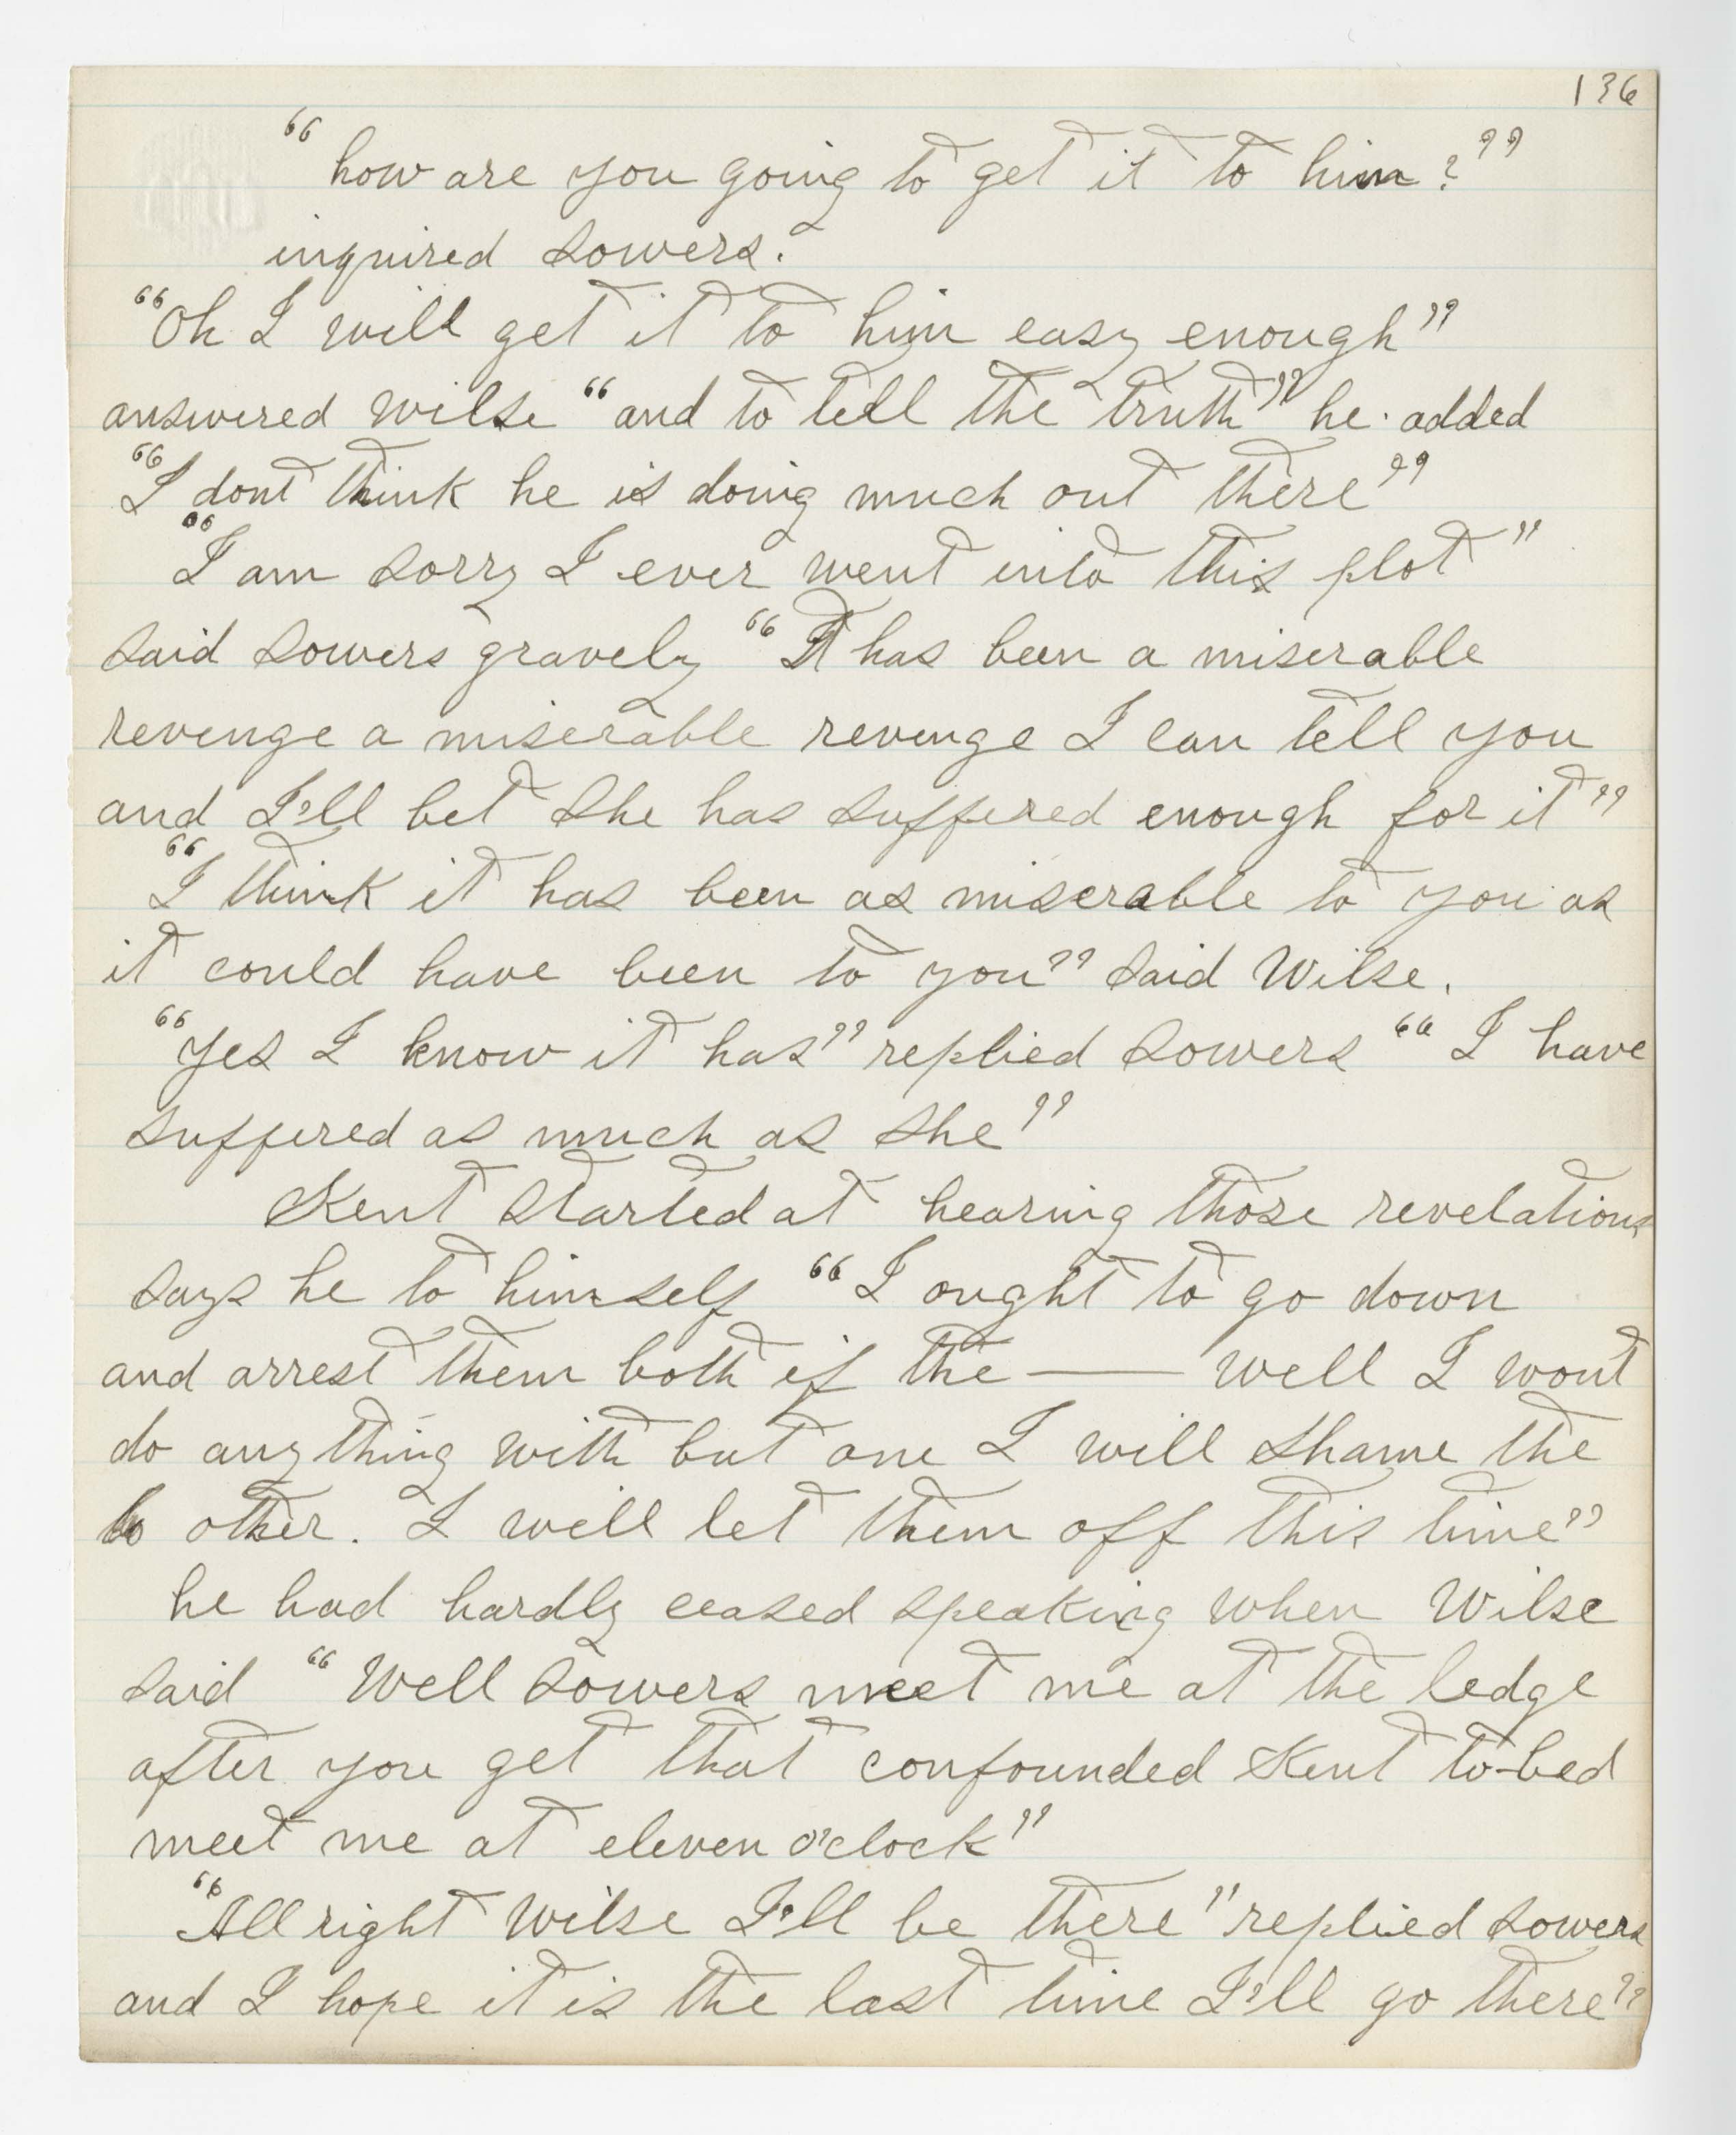 136
"how are you going to get it to him?"
inquired Sowers.
"Oh I will get it to him easy enough"
answered Wilse "and to tell the truth" he added
"I dont think he is doing much out there"
"I am sorry I ever went into this plot"
said Sowers gravely "It has been a miserable
revenge a miserable revenge I can tell you
and I'll bet she has suffered enough for it"
"I think it has been as miserable to you as
it could have been to you" said Wilse.
"Yes I know it has" replied Sowers "I have
suffered as much as she"
Kent started at hearing those revelations
says he to himself "I ought to go down
and arrest them both if the — well I wont
do anything with but one I will shame the
other. I will let them off this time"
he had hardly ceased speaking when Wilse
said "Well Sowers meet me at the ledge
after you get that confounded Kent to-bed
meet me at eleven o'clock"
"All right Wilse I'll be there" replied Sowers
and I hope it is the last time I'll go there"